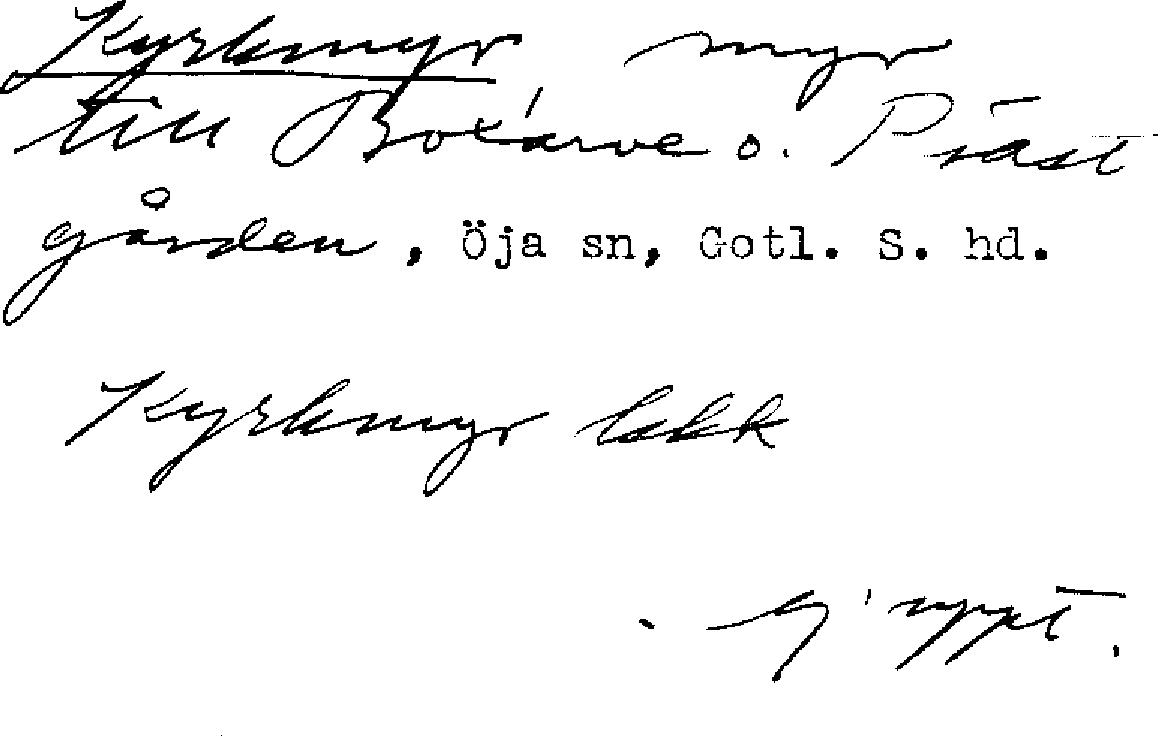 Kyrkmyr myr
till Botarve o. Präst
gården, Öja sn, Gotl. S. hd.
Kyrkmyr lakk
Ej uppt.